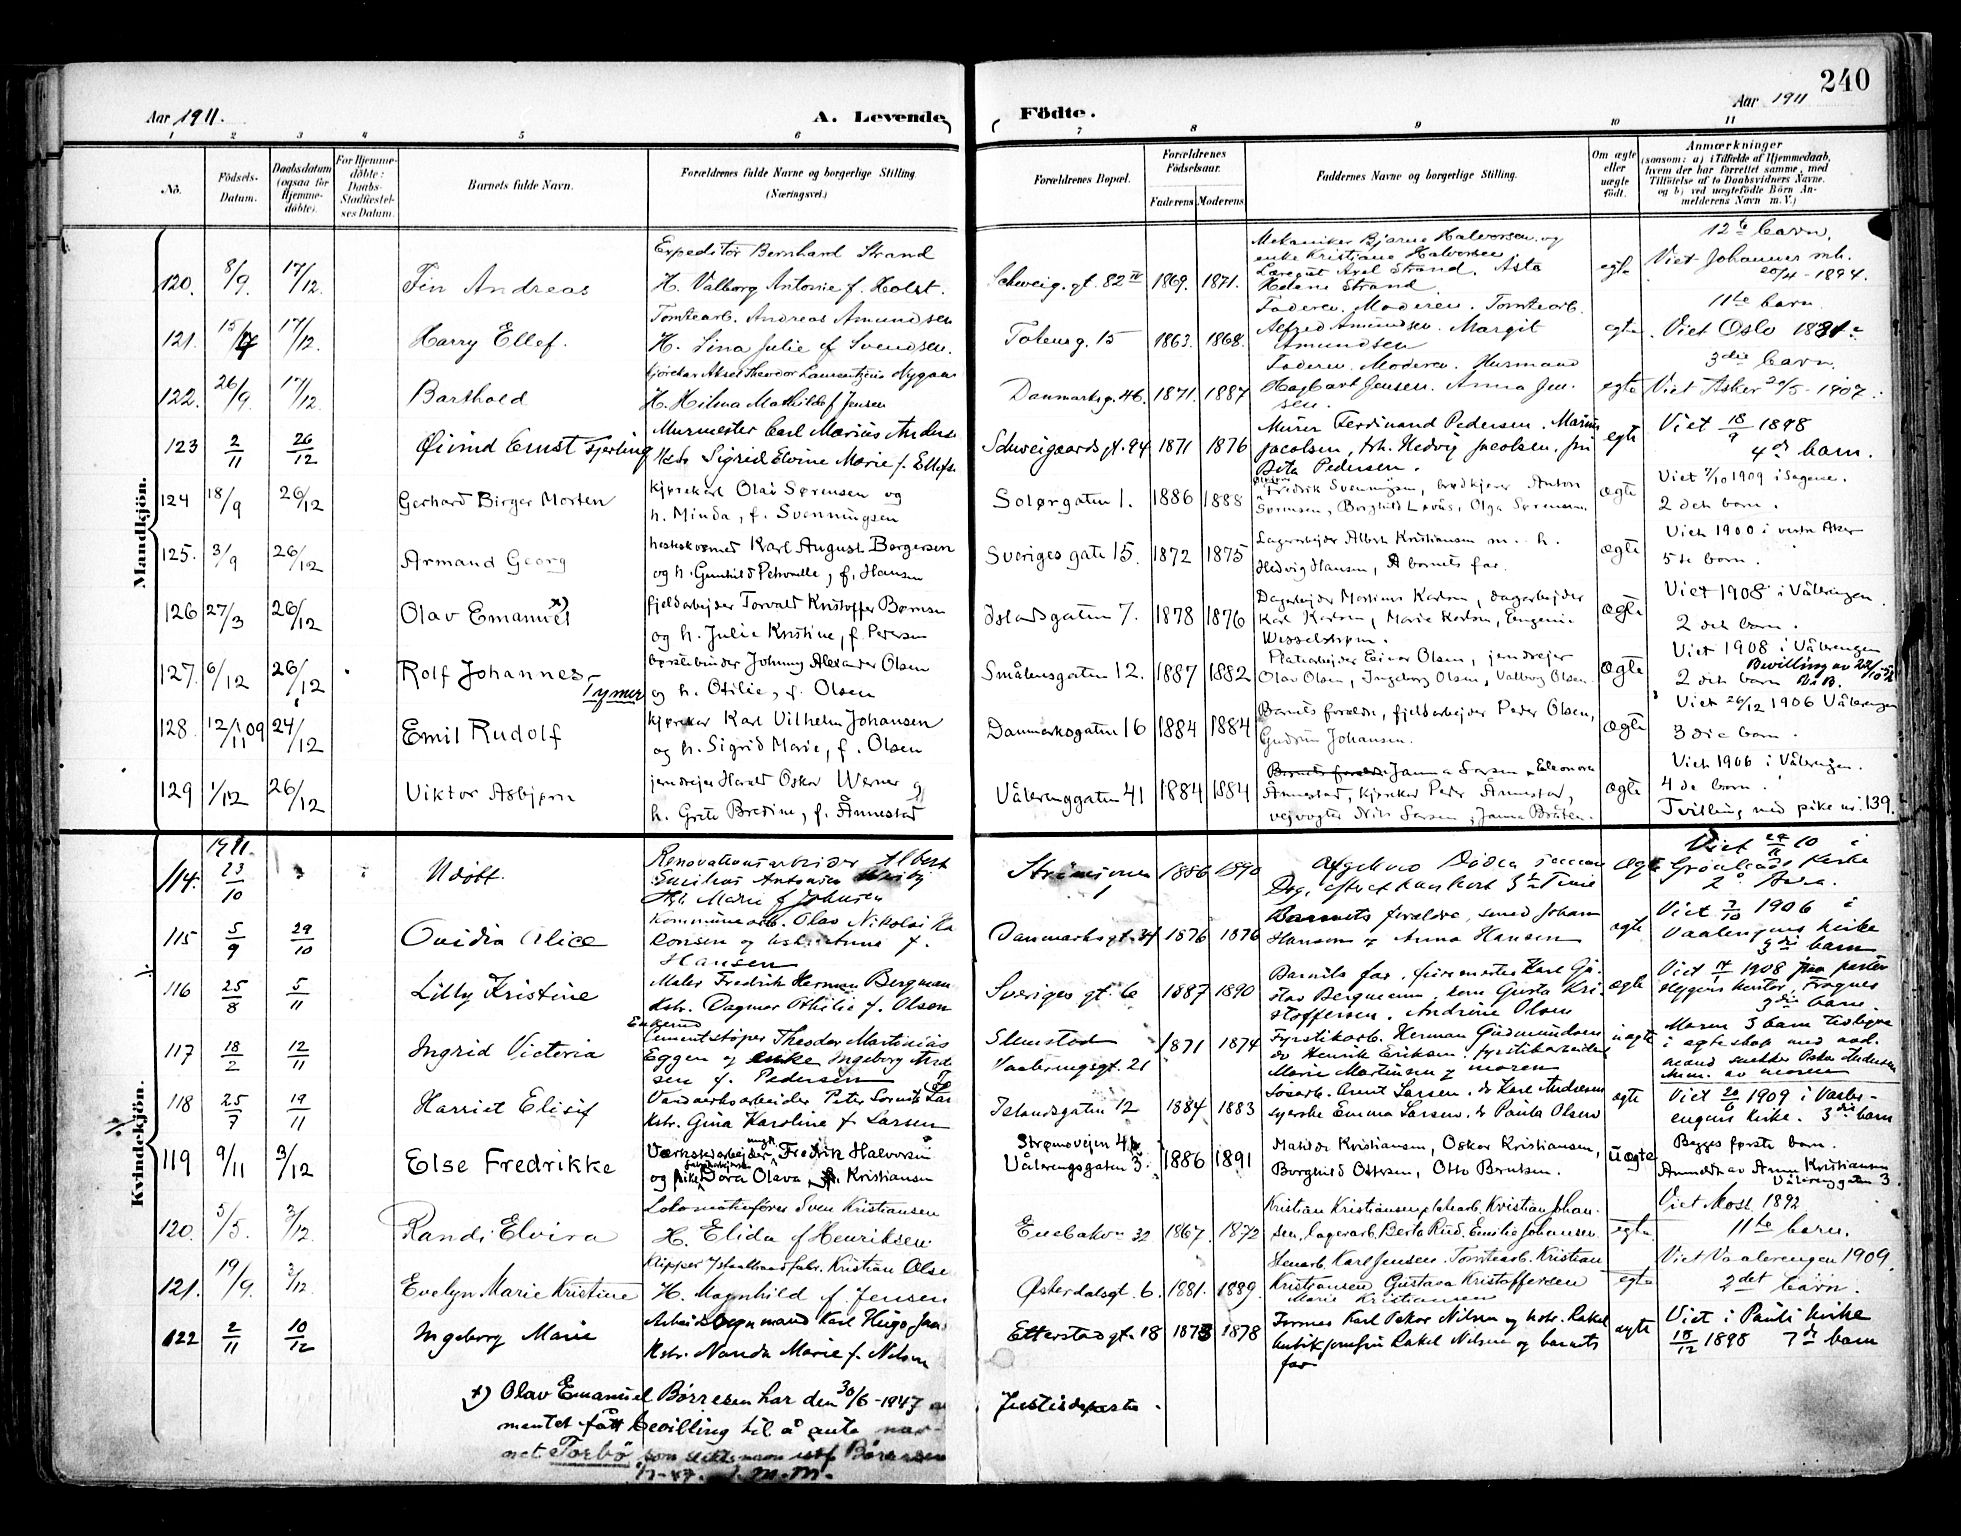 240
Aar 1911.
A. Levende
Födte.
Aar 1911
1 2 3 4 5 6 7 8 9 10 11
No.
Födsels-Datum.
Daabsdatum (ogsaa for Hjemme-döbte).
For Hjemme-döbte: Daabs-Stadfæstel-ses Datum.
Barnets fulde Navn.
Forældrenes fulde Navne og borgerlige Stilling. (Næringsvei.)
Forældrenes Bopæl.
Forældrenes Födselsaar.
Faderens Moderens
Faddernes Navne og borgerlige Stilling.
Om ægte eller uægte født.
Anmærkninger
(saasom: a) i Tilfælde af Hjemmedaab, hvem der har forrettet samme, med Tilföielse af to Daabsvidners Navne. og b) ved uægtefödte Börn An-melderens Navn m. V.)
Mandkjön.
120. 8/9. 17/12. Fin Andreas
Expeditör Bernhard Strand
H. Valborg Antonie f. Holst.
Schweig. gt. 82 IV 1869. 1871.
Mekaniker Bjarne Halvorsen og
enke Kristiane Halvorsen,
Axel Strand. Asta
Helene Strand.
egte
12te barn.
Viet Johannes mh.
20/4 - 1894.
121. 17/12. Harry Ellef.
Tomtearb. Andreas Amundsen
H. Lina Julie f Svendsen.
Töieng. 15 1863. 1868.
Faderen. Moderen. Tomtearb.
Alfred Amundsen. Margit
Amundsen
egte
11te barn
Viet Oslo
122. 26/9. 17/12. Barthold
Aksel Theodor Laurentzius Nygaard
H. Hilma Mathilde f Jensen
Danmarksg. 46. 1871. 1887
Faderen. Moderen. Husmand
Hagbart Jensen. Anna Jen-
sen.
egte
3die barn.
Viet Asker - 1907.
123 2/11 26/12 Øivind Ernst Fjerling
Murmester Carl Marius Anders
Hstr Sigrid Elvine Marie f. Ellefs
Schweigaards gt. 94 1871 1876
Murer Ferdinand Pedersen. Marius
Jacobsen, Hedvig Jacobsen, fru
Pedersen.
egte
Viet 18/9 1898
4de barn.
124 18/9 26/12 Gerhard Birger Morten
kjørekarl Olav Sørensen og
h. Minda, f. Svenningsen
Solørgaten 1. 1886 1888
Fredrik Svenningsen, brødkjører Anton
Sørensen, Borghild Løvås, Olga Sørensen
ægte
Viet 7/10 1909 i Sagene.
2 det barn.
125. 3/9 26/12 Armand Georg
Karl August Borgersen
og h. Gunhild Petronelle, f. Hansen
Sveriges gate 15. 1872 1875
Lagerarbejder Albert Kristiansen m. h.
Hedvig Hansen, barnets far.
ægte
Viet 1900 i vestre Aker
5te barn.
126 27/3 26/12 Olav Emanuel x)
fjeldarbejder Torvald Kristoffer Børresen
og h. Julie Kristine, f. Petersen
Islandsgaten 7. 1878 1876
Dagarbejder Martinus Karlsen, dagarbejder
Karl Karlsen, Marie Karlsen, Eugenie
Wesselstrøm.
ægte
Viet 1908 i Vålerengen
2 det barn.
127. 6/12 26/12 Rolf Johannes
Tymer
børstebinder Johnny Alexander Olsen
og h. Otilie, f. Olsen
Smålensgaten 12. 1887 1882
Platearbejder Einar Olsen, jerndrejer
Olav Olsen, Ingeborg Olsen, Valborg Olsen
ægte
Viet 1908 i Vålerengen
Bevilling av 22/10
2 det barn
128. 12/11 09 24/12 Emil Rudolf
kjørekar Karl Vilhelm Johansen
og h. Sigrid Marie, f. Olsen
Danmarksgaten 16 1884 1884
Barnets foreldre, fjeldarbejder Peder Olsen,
Gudrun Johansen.
ægte
Viet 26/12 1906 Vålerengen
3die barn.
129 1/12 26/12 Viktor Asbjørn
jerndrejer Harald Oskar Werner og
h. Grete Bredine, f. Ånnestad
Vålerenggaten 41 1884 1884
Janna Larsen, Eleonora
Ånnestad, kjørekar Peder Ånnestad,
vejvogter Nils Larsen, Janna Bråten.
ægte
Viet 1906 i Vålerengen.
4 de barn.
Tvilling med pike nr. 139.
Kvindekjön.
1911.
114. 23/10 Udöbt.
Renovationsarbeider Albert
Antonsen
Marie f Johnsen
1886 1890
Afgik ved Döden samme
Dag, efter at have levet
Ægte
Viet 10 i
Grønlands Kirke
115 5/9 29/10 Ovidia Alice
Kommunearb. Olav Nikolai Ha
konsen og f.
Hansen
Danmarksgt. 34 1876 1876
Barnets forældre, Johan
Hansen og Anna Hansen
ægte
Viet 7/10 1906 i
Vaalengens kirke
3die barn
116 25/8 5/11 Lilly Kristine
Maler Fredrik Herman Bergman
Hstr. Dagmar Othilie f. Olsen
Sveriges gt. 6 1887 1890
Barnets far, Karl Gu-
stav Bergmann, Gusta Kri-
stoffersen. Andrine Olsen
ægte
Viet 1908 paa pastor
Hygens kontor, Frogner
barn
117 18/2 12/11 Ingrid Victoria
Cementstøper Theodor Martinius
Eggen og enke Ingeborg
sen f. Pedersen
Vaalerengsgt. 21 1871 1874
Fyrstikarb. Herman Gudmundsen
do Henrik Eriksen. fyrstikarbeider
Marie Martinsen og moren
uægte
Moren 3 barn tidligere
i egteskab med
mand Oskar Andersen
Anm. av moren
118 25/7 19/11 Harriet Elisif
Peter
Hstr. Gina Karoline f Larsen
Islandsgaten 12 1884 1883
Larsen. do Karl Andersen
syerske Emma Larsen. do Paula Olsen
ægte
Viet 1909 i Vaaler-
engens kirke. 3die barn
119 9/11 3/12 Else Fredrikke
Værkstedarbejder, ungk. Fredrik Halvorsen
og pike Dora Olava, Kristiansen
Strømsvejen
Vålerengsgaten 3. 1886 1891
Matilde Kristiansen, Oskar Kristiansen,
Borghild Ottersen, Otto Berntsen.
Uægte
Begges første barn.
Anmeldt av Anna Kristiansen
Vålerenggaten 3.
120. 5/5. 3/12. Randi Elvira
Lokomotivfører Sven Kristiansen
H. Elida f Henriksen.
Enebakvn 32 1867. 1872
Kristian Kristiansen, platearb. Kristian Johan-
sen, lagerarb. Berta Rud. Emilie Johansen
egte
Viet Moss 1892
11te barn.
121. 19/9. 3/12. Evelyn Marie Kristine
Klipper Kristian Olse
H. Magnhild f Jensen
Østerdalsgt. 6. 1881. 1889.
Stenarb. Karl Jensen. Tomtearb. Kristian
Kristiansen Gustava Kristoffersen
Marie Kristiansen
egte
Viet Vaalerengen 1909.
2det barn.
122 2/11 10/12 Ingeborg Marie
Karl Hugo
Hstr. Nanda Marie f. Nilsen
Etterstadgt. 18 1873 1878
Karl Oskar Nilsen og hstr. Rakel
Rakel Nilsen og barnets
far
ægte
Viet i Pauli kirke
18/12 1898 7de barn
x) Olav Emanuel Børresen har den 30/6 - 1947 av
Justisdeparte-
mentet fått bevilling til å anta nav-
net Torbö som slektsnavn istf Börresen